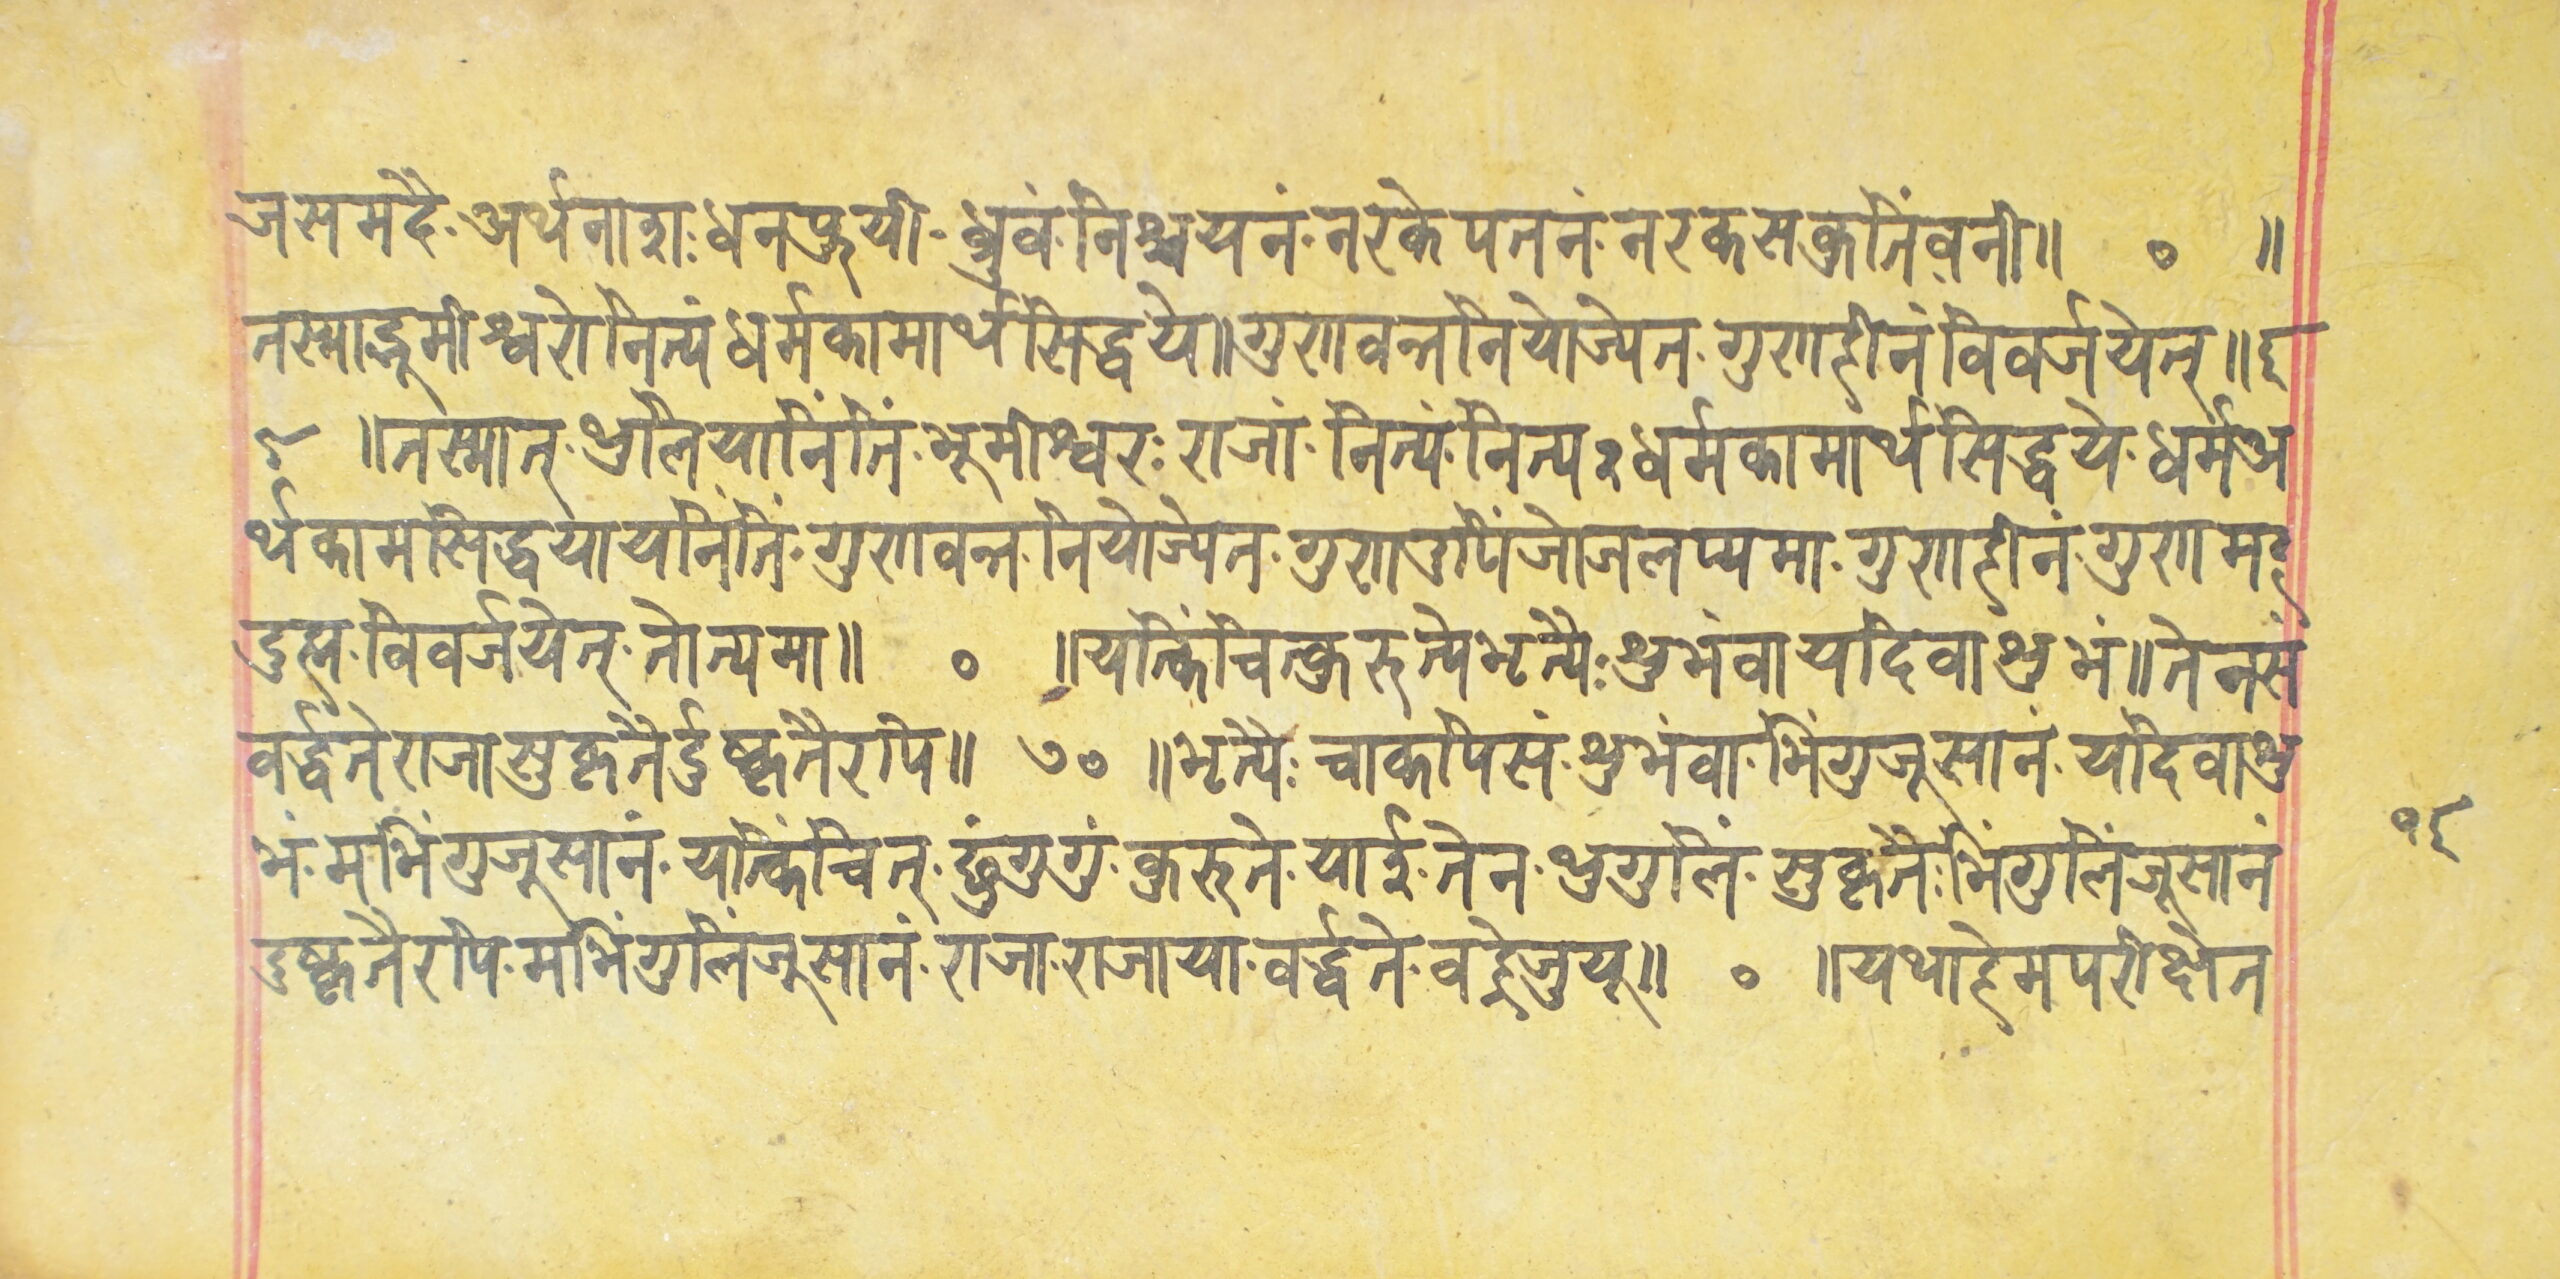 जसमदै· अर्थनाशः धनफुयी· ध्रुवं· निश्चयनं· नरके पतनं· नरकस क्रुतिंवनी॥ ० ॥
तस्माद्भूमीश्वरो नित्यं धर्मकामार्थसिद्धये॥ गुणवन्त नियोज्येत· गुणहीनं विवर्जयेत्॥ ६
९ ॥ तस्मात्· थ्रुलियानिंतिं· भूमीश्वरः राजां· नित्यं· नित्यः धर्मकामार्थसिद्धये· धर्मअ
र्थकामसिद्धयायनिंतिं· गुणवन्त· नियोज्येत· गुणडपिं जोजलप्यमा· गुणहीनं· गुणमद्
दुह्म· विवर्जयेत्· तोत्यमा॥ ० ॥ यत्किंचित्क्रुरुत्ये भृत्यैः शुभंवा यदिवाशुभं॥ तेनसं
वर्द्धते राजा सुकृतैर्दुष्कृतैरपि॥ ७० ॥ भृत्यैः चाकपिसं· शुभंवा· भिंगुजूसानं· यदिवाशु
भं· मभिंगुजूसानं· यत्किंचित्· छुंगुगुं· क्रुरुते· यार्इ· तेन· थ्रुगुलिं· सुकृतैः भिंगुलिंजूसानं
दुष्कृतैरपि· मभिंगुलिंजूसानं· राजा· राजाया· वर्द्धते· वद्देजुयू॥ ० ॥ यथाहेमपरीक्षेत
१९